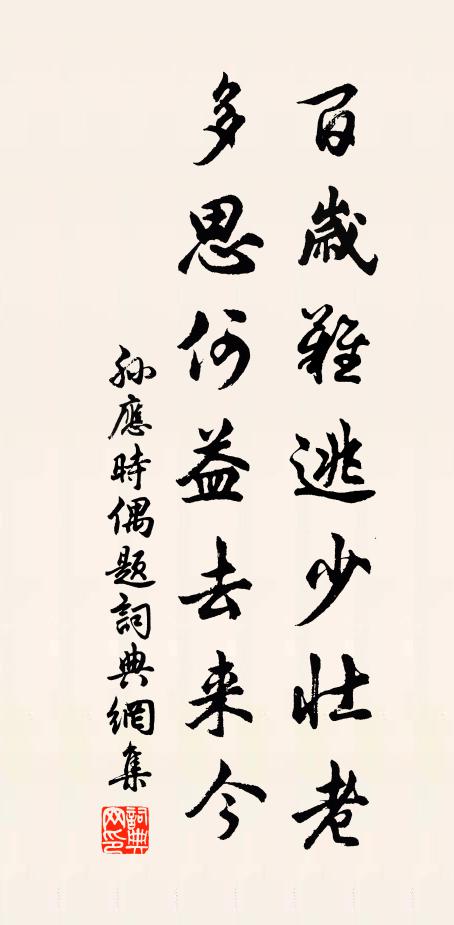 百歲難逃少壯老
多思何益去来今
孫應時偶題詞典網集
詞典網印